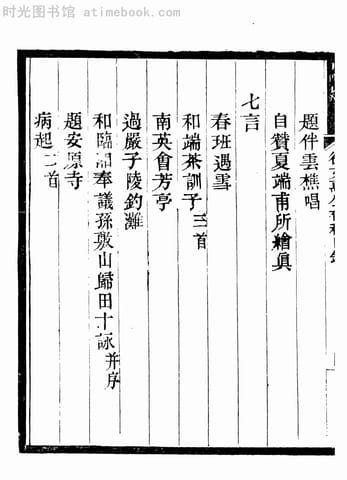 时光图书馆 - atimebook.com
題伴雲樵唱
自贊夏端甫所繪眞
七言
春班遇雪
和端茶訓子三首
南英會芳亭
過嚴子陵釣灘
和臨湘奉議孫敬山歸田十詠并序
題安原寺
病起二首